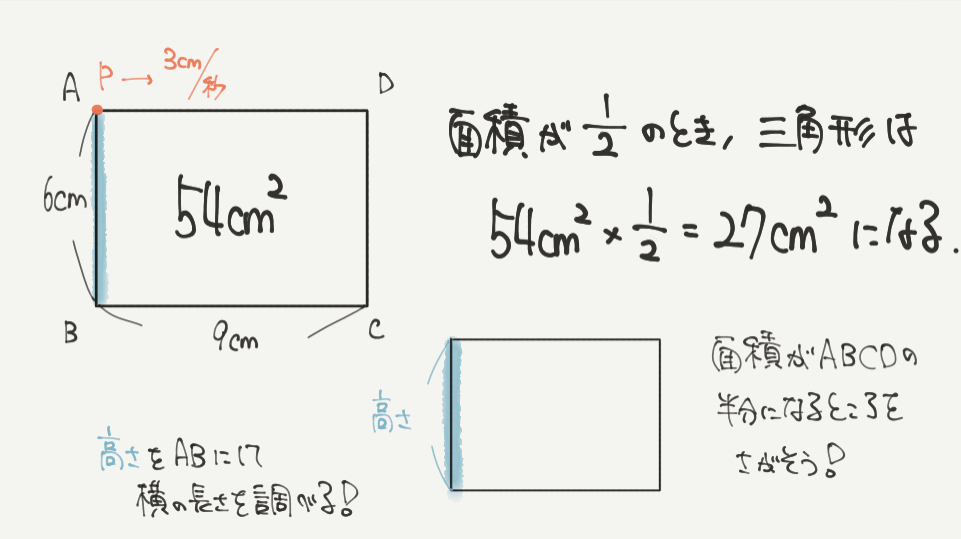 P → 3cm/秒
A
D
6cm
54cm²
B
9cm
C
面積が 1/2 のとき, 三角形は
54cm² × 1/2 = 27cm² になる.
高さ
面積がABCDの
半分になるところを
さがそう!
高さをABにして
横の長さを調べる!